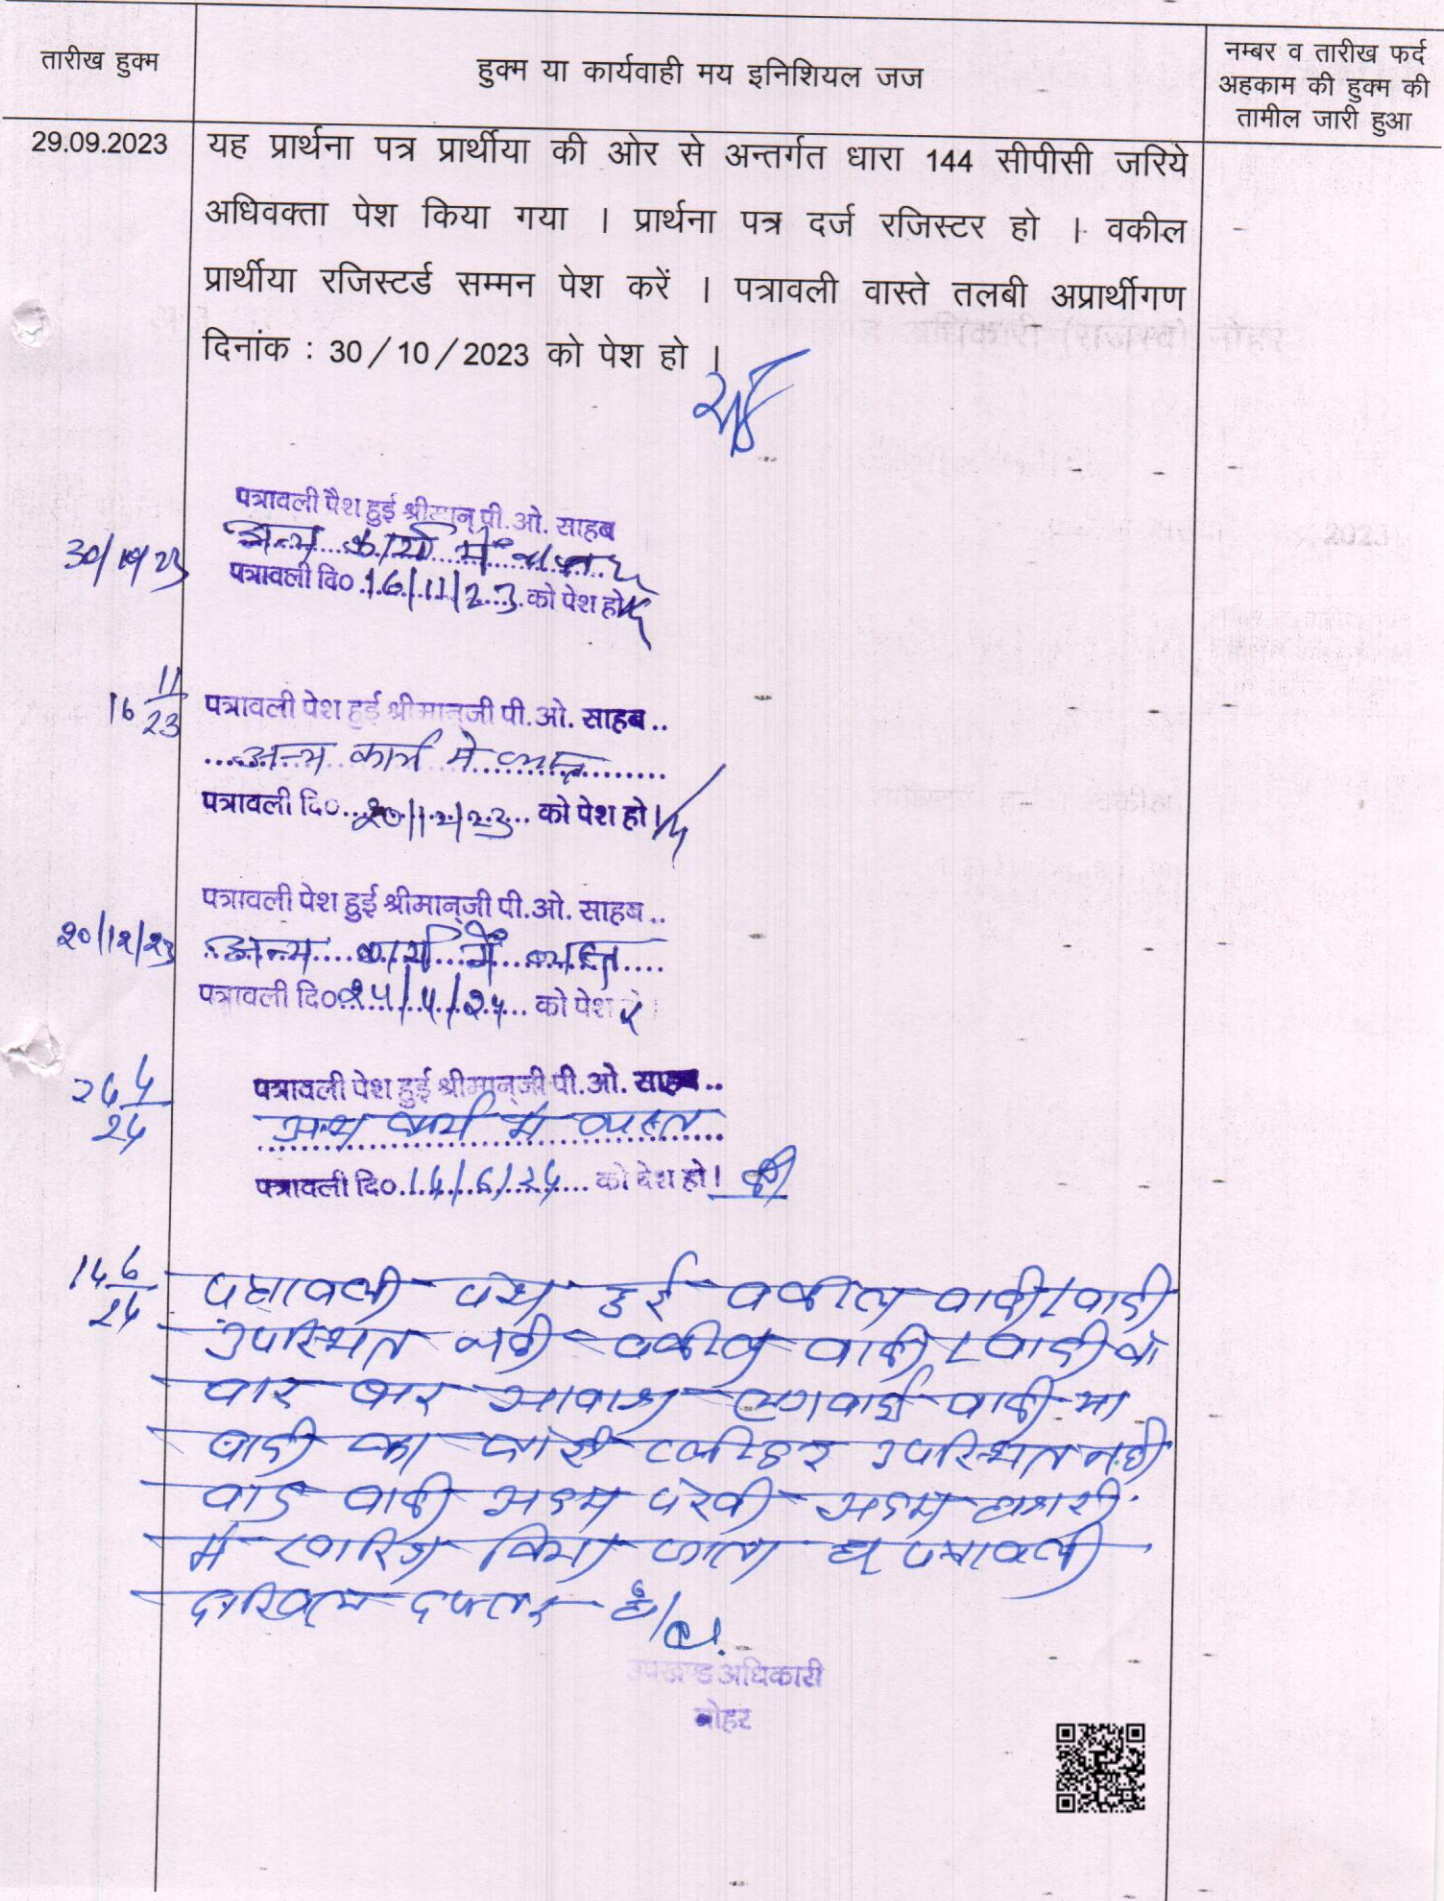 तारीख हुक्म
हुक्म या कार्यवाही मय इनिशियल जज
नम्बर व तारीख फर्द
अहकाम की हुक्म की
तामील जारी हुआ
29.09.2023
यह प्रार्थना पत्र प्रार्थीया की ओर से अन्तर्गत धारा 144 सीपीसी जरिये
अधिवक्ता पेश किया गया । प्रार्थना पत्र दर्ज रजिस्टर हो । वकील
प्रार्थीया रजिस्टर्ड सम्मन पेश करें । पत्रावली वास्ते तलबी अप्रार्थीगण
दिनांक : 30/10/2023 को पेश हो ।
पत्रावली पेश हुई श्रीमान् पी.ओ. साहब
30/10/23
अन्य कार्य में व्यस्त
पत्रावली दि० 16/11/23 को पेश हो
16 11/23
पत्रावली पेश हुई श्रीमान्जी पी.ओ. साहब..
अन्य कार्य मे व्यस्त
पत्रावली दि०...20/12/23... को पेश हो।
पत्रावली पेश हुई श्रीमान्जी पी.ओ. साहब..
20/12/23
अन्य कार्य में व्यस्त
पत्रावली दि० 24/4/24... को पेश
24 4/24
पत्रावली पेश हुई श्रीमान्जी पी.ओ. साहब..
अन्य कार्य मे व्यस्त
पत्रावली दि० 14/6/24... को पेश हो।
14 6/24
पत्रावली पेश हुई वकील वादी/वादी
उपस्थित नही वकील वादी/वादी को
बार बार आवाज लगवाई वादी या
वादी का कोई उपस्थित नही
वाद वादी अदम पैरवी अदम हाजरी
मे खारिज किया जाता है पत्रावली
दाखिल दफ्तर हो
उपखण्ड अधिकारी
नोहर